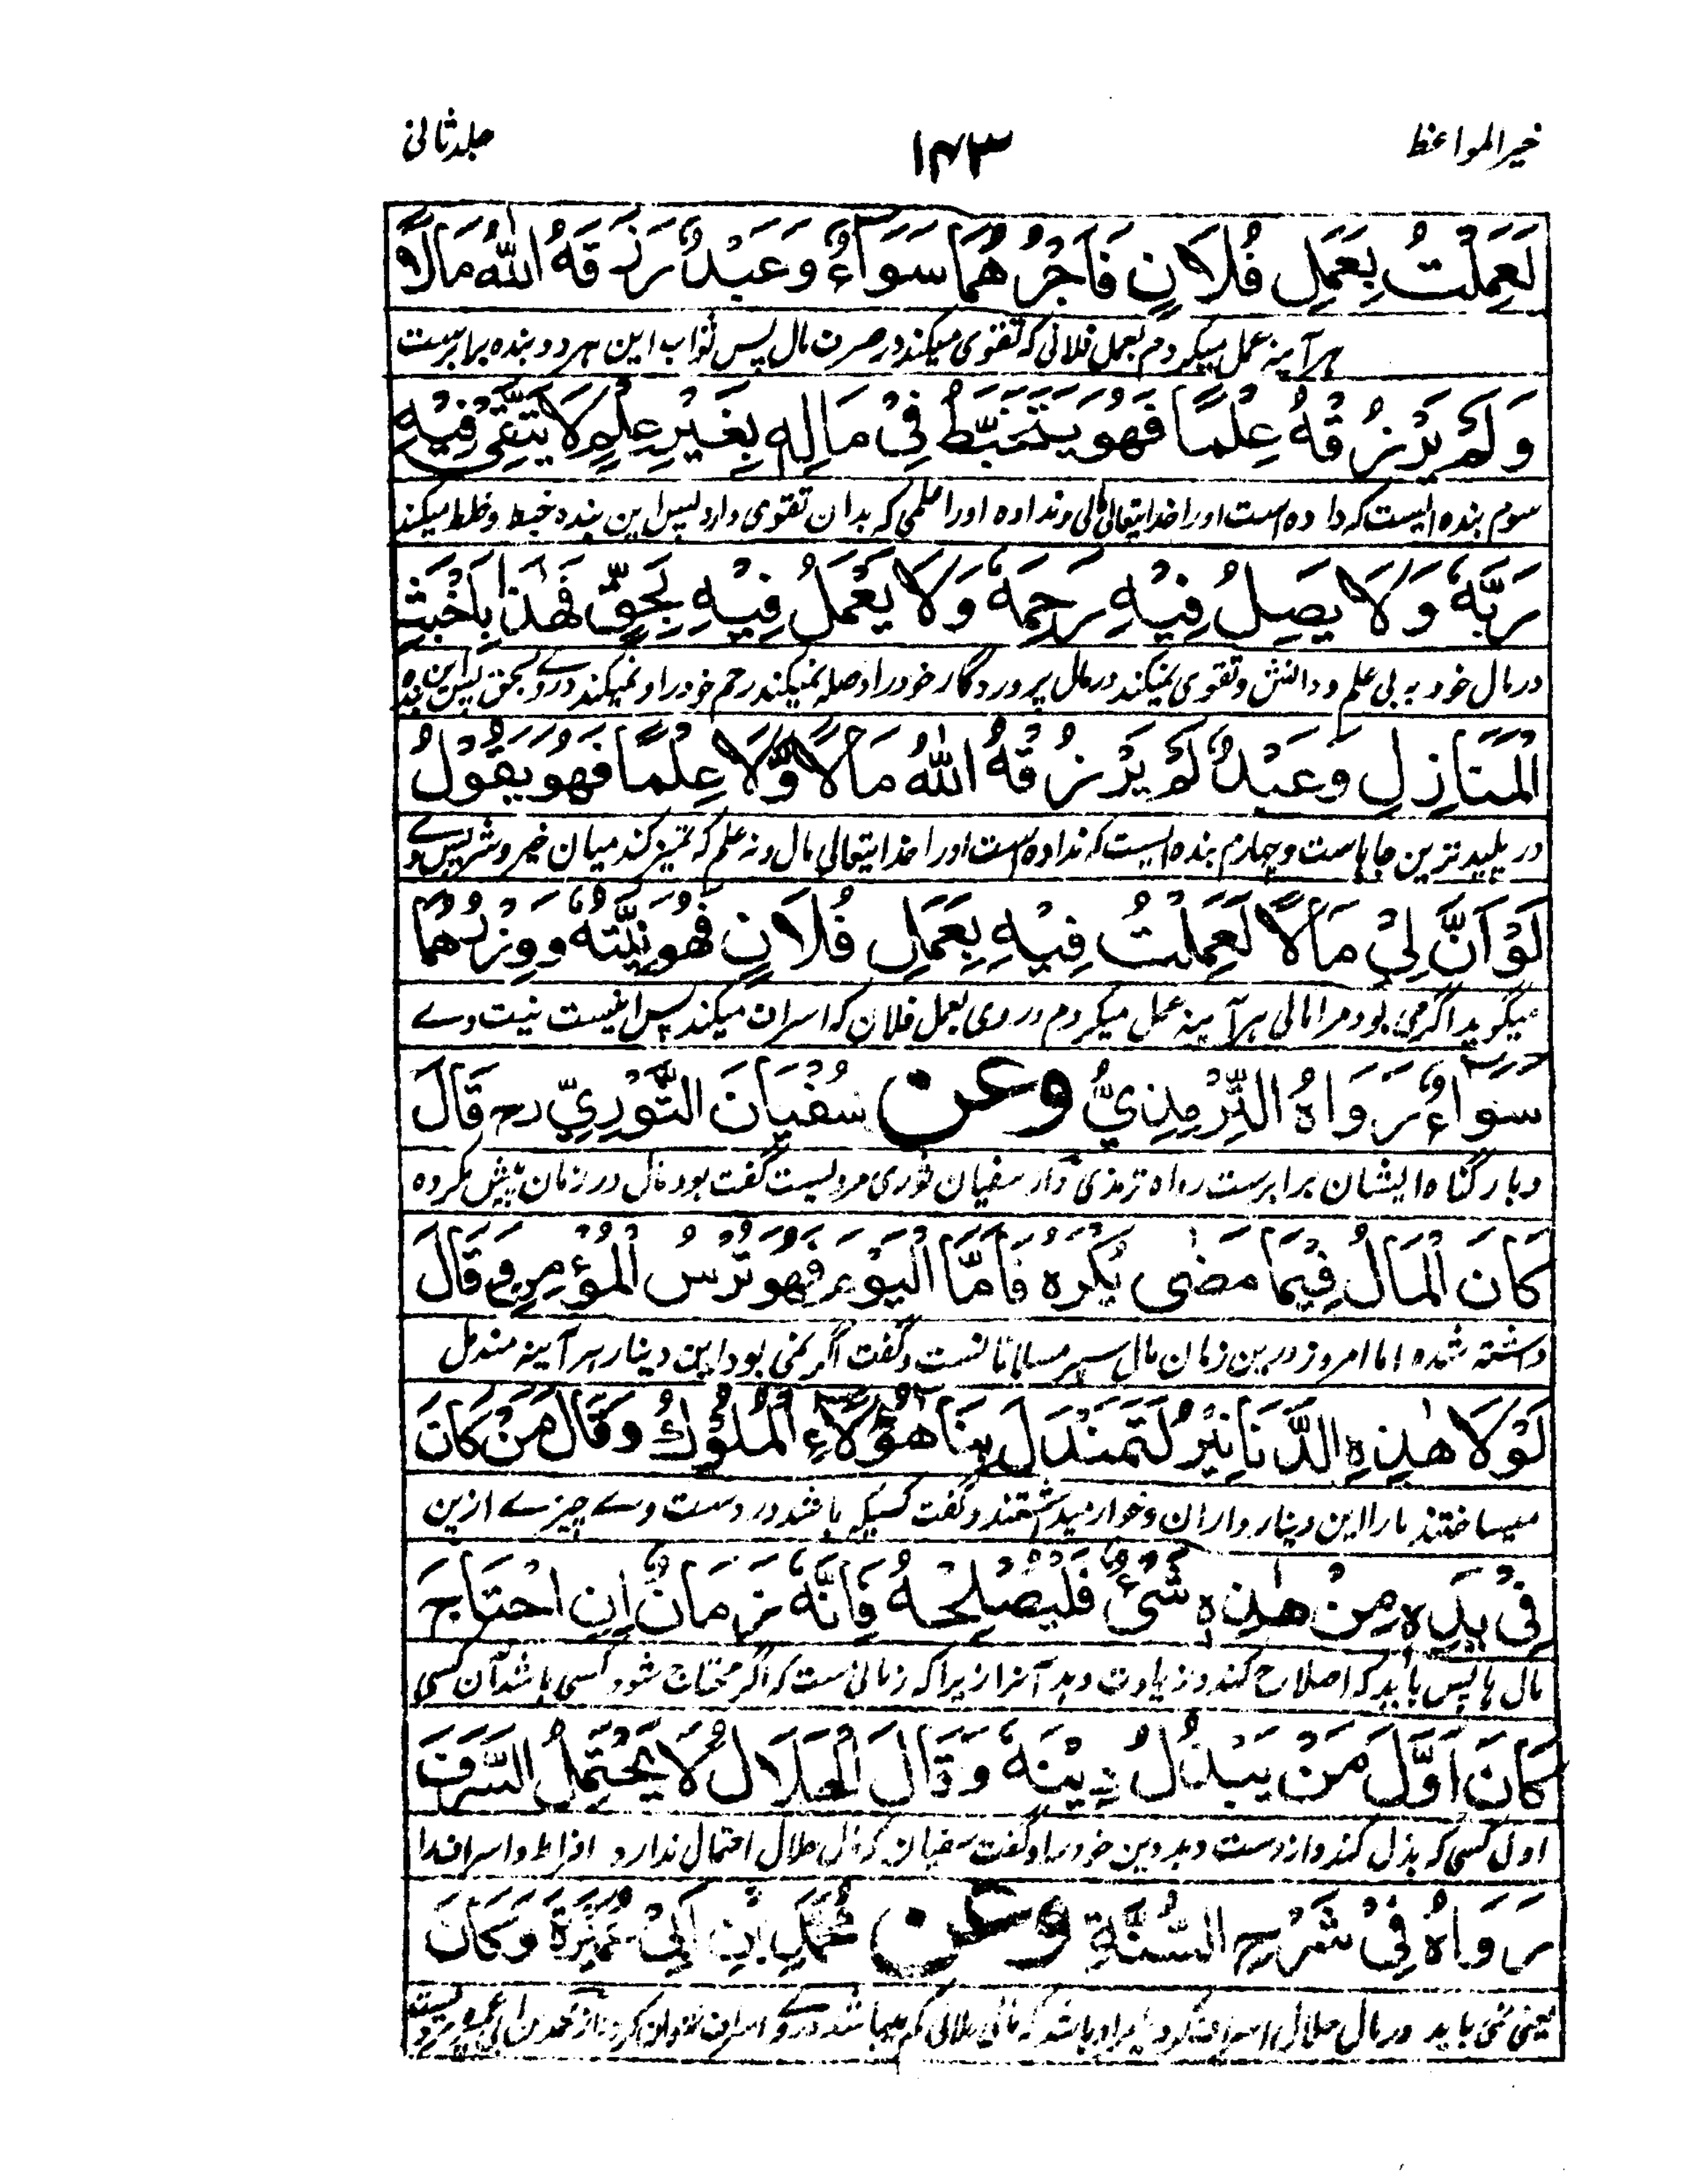 خیر المواعظ
۱۴۳
جلد ثانی
لَعَمِلْتُ بِعَمَلِ فُلَانٍ فَاَجْرُهُمَا سَوَآءٌ وَعَبْدٌ رَزَقَهُ اللّٰهُ مَالًا
ہر آینہ عمل میکردم بعمل فلانی کہ تقوی میکند در صرف مال پس ثواب این ہر دو بندہ برابرست
وَلَمْ يَرْزُقْهُ عِلْمًا فَهُوَ يَتَخَبَّطُ فِیْ مَالِهٖ بِغَيْرِ عِلْمٍ لَا يَتَّقِیْ فِيْهِ
سوم بندہ ایست کہ دادہ است اورا خدایتعالی مالی و ندادہ اورا علمی کہ بدان تقوی دارد پس این بندہ خبط و خلط میکند
رَبَّهٗ وَلَا يَصِلُ فِيْهِ رَحِمَهٗ وَلَا يَعْمَلُ فِيْهِ بِحَقٍّ فَهٰذَا بِاَخْبَثِ
در مال خود بہ بی علم و دانش و تقوی نمیکند در مال پروردگار خود را و صلہ نمیکند رحم خود را و نمیکند در وے بحق پس این بندہ
الْمَنَازِلِ وَعَبْدٌ لَمْ يَرْزُقْهُ اللّٰهُ مَالًا وَّلَا عِلْمًا فَهُوَ يَقُوْلُ
در پلید ترین جاہاست و چہارم بندہ ایست کہ ندادہ است اورا خدایتعالی مال و نہ علم کہ تمیز کند میان خیر و شر پس وے
لَوْ اَنَّ لِیْ مَالًا لَعَمِلْتُ فِيْهِ بِعَمَلِ فُلَانٍ فَهُوَ نِيَّتُهٗ وَوِزْرُهُمَا
میگوید اگر می بود مرا مالی ہر آینہ عمل میکردم در وی بعمل فلان کہ اسراف میکند پس اینست نیت وے
سَوَآءٌ رَوَاهُ التِّرْمِذِیُّ وعن سُفْيَانَ الثَّوْرِیِّ رح قَالَ
و بار گناہ ایشان برابرست رواہ ترمذی و از سفیان ثوری مرویست گفت بود مال در زمان پیش مکروہ
كَانَ الْمَالُ فِيْمَا مَضٰى يُكْرَهُ فَاَمَّا الْيَوْمَ فَهُوَ تُرْسُ الْمُؤْمِنِ وَقَالَ
داشتہ شدہ اما امروز درین زمان مال سپر مسلمانانست و گفت اگر نمی بود این دینار ہر آینہ مندیل
لَوْلَا هٰذِهِ الدَّنَانِيْرُ لَتَمَنْدَلَ بِنَا هٰؤُلَآءِ الْمُلُوْكُ وَقَالَ مَنْ كَانَ
میساختند مارا این دینار داران و خوار میداشتند و گفت کسیکہ باشد در دست وے چیزے ازین
فِیْ يَدِهٖ مِنْ هٰذِهٖ شَیْءٌ فَلْيُصْلِحْهُ فَاِنَّهٗ زَمَانٌ اِنِ احْتَاجَ
مال ہا پس باید کہ اصلاح کند و زیادت دہد آنرا زیرا کہ زمانی ست کہ اگر محتاج شود کسی باشد آن کسی
كَانَ اَوَّلَ مَنْ يَبْذُلُ دِيْنَهٗ وَقَالَ الْحَلَالُ لَا يَحْتَمِلُ السَّرَفَ
اول کسی کہ بذل کند و از دست دہد دین خود را و گفت سفیان کہ مال حلال احتمال ندارد افراط و اسراف را
رَوَاهُ فِیْ شَرْحِ السُّنَّةِ وعن مُحَمَّدِ بْنِ اَبِیْ عَمِيْرَةَ وَكَانَ
یعنی نمی باید در مال حلال اسراف کرد مراد باشد کہ مال حلالی کم میباشد در وے اسراف نتوان کرد و از محمد بن ابی عمیرہ مرویست